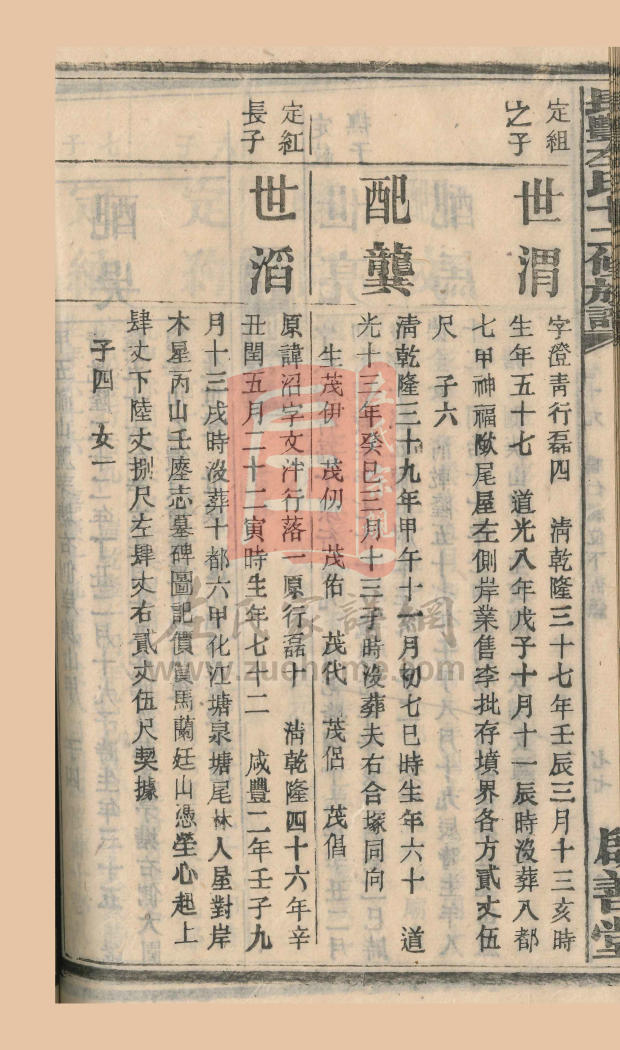 長豐左氏十二修族譜
啟善堂
定組
之子
世渭
字澄青行磊四　清乾隆三十七年壬辰三月十三亥時
生年五十七　道光八年戊子十月十一辰時沒葬八都
七甲神福歐尾屋左側岸業售李批存墳界各方貳丈伍
尺　子六
配龔
清乾隆三十九年甲午十一月初七巳時生年六十　道
光十三年癸巳三月十三子時沒葬夫右合塚同向
生茂伊　茂仞　茂佑　茂代　茂侶　茂倡
定紅
長子
世滔
原諱沼字文泮行落一原行磊十　清乾隆四十六年辛
丑閏五月二十二寅時生年七十二　咸豐二年壬子九
月十三戌時沒葬十都六甲化江塘泉塘尾林人屋對岸
木星丙山壬塵志墓碑圖記價買馬蘭廷山憑塋心起上
肆丈下陸丈捌尺左肆丈右貳丈伍尺契據
子四　女一
左氏家譜網
www.zuoname.com